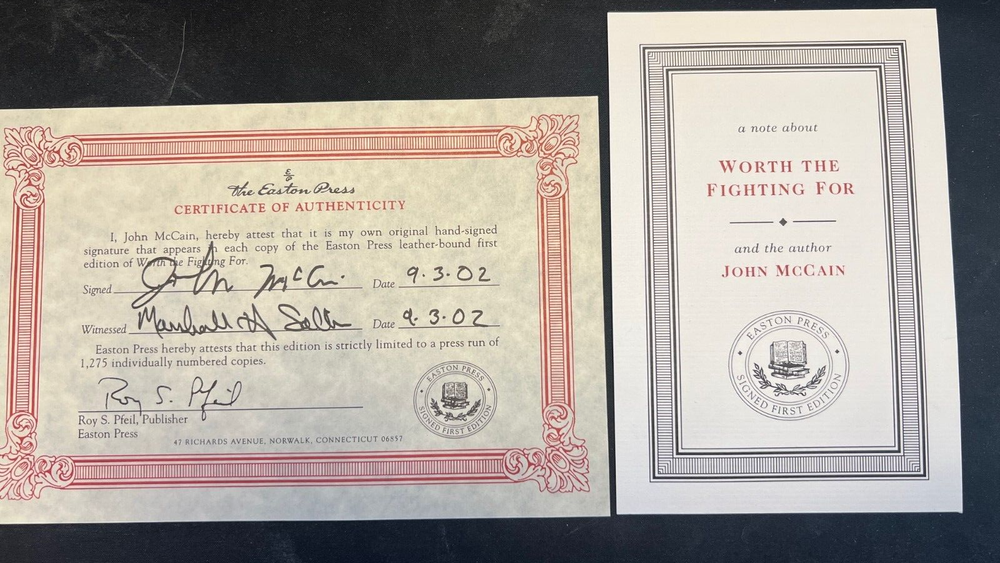 E/P
the Easton Press
CERTIFICATE OF AUTHENTICITY
I, John McCain, hereby attest that it is my own original hand-signed
signature that appears in each copy of the Easton Press leather-bound first
edition of Worth the Fighting For.
Signed John McCain Date 9.3.02
Witnessed Marshall A Date 9.3.02
Easton Press hereby attests that this edition is strictly limited to a press run of
1,275 individually numbered copies.
Roy S. Pfeil
Roy S. Pfeil, Publisher
Easton Press
47 RICHARDS AVENUE, NORWALK, CONNECTICUT 06857
EASTON PRESS
SIGNED FIRST EDITION
a note about
WORTH THE
FIGHTING FOR
and the author
JOHN McCAIN
EASTON PRESS
SIGNED FIRST EDITION